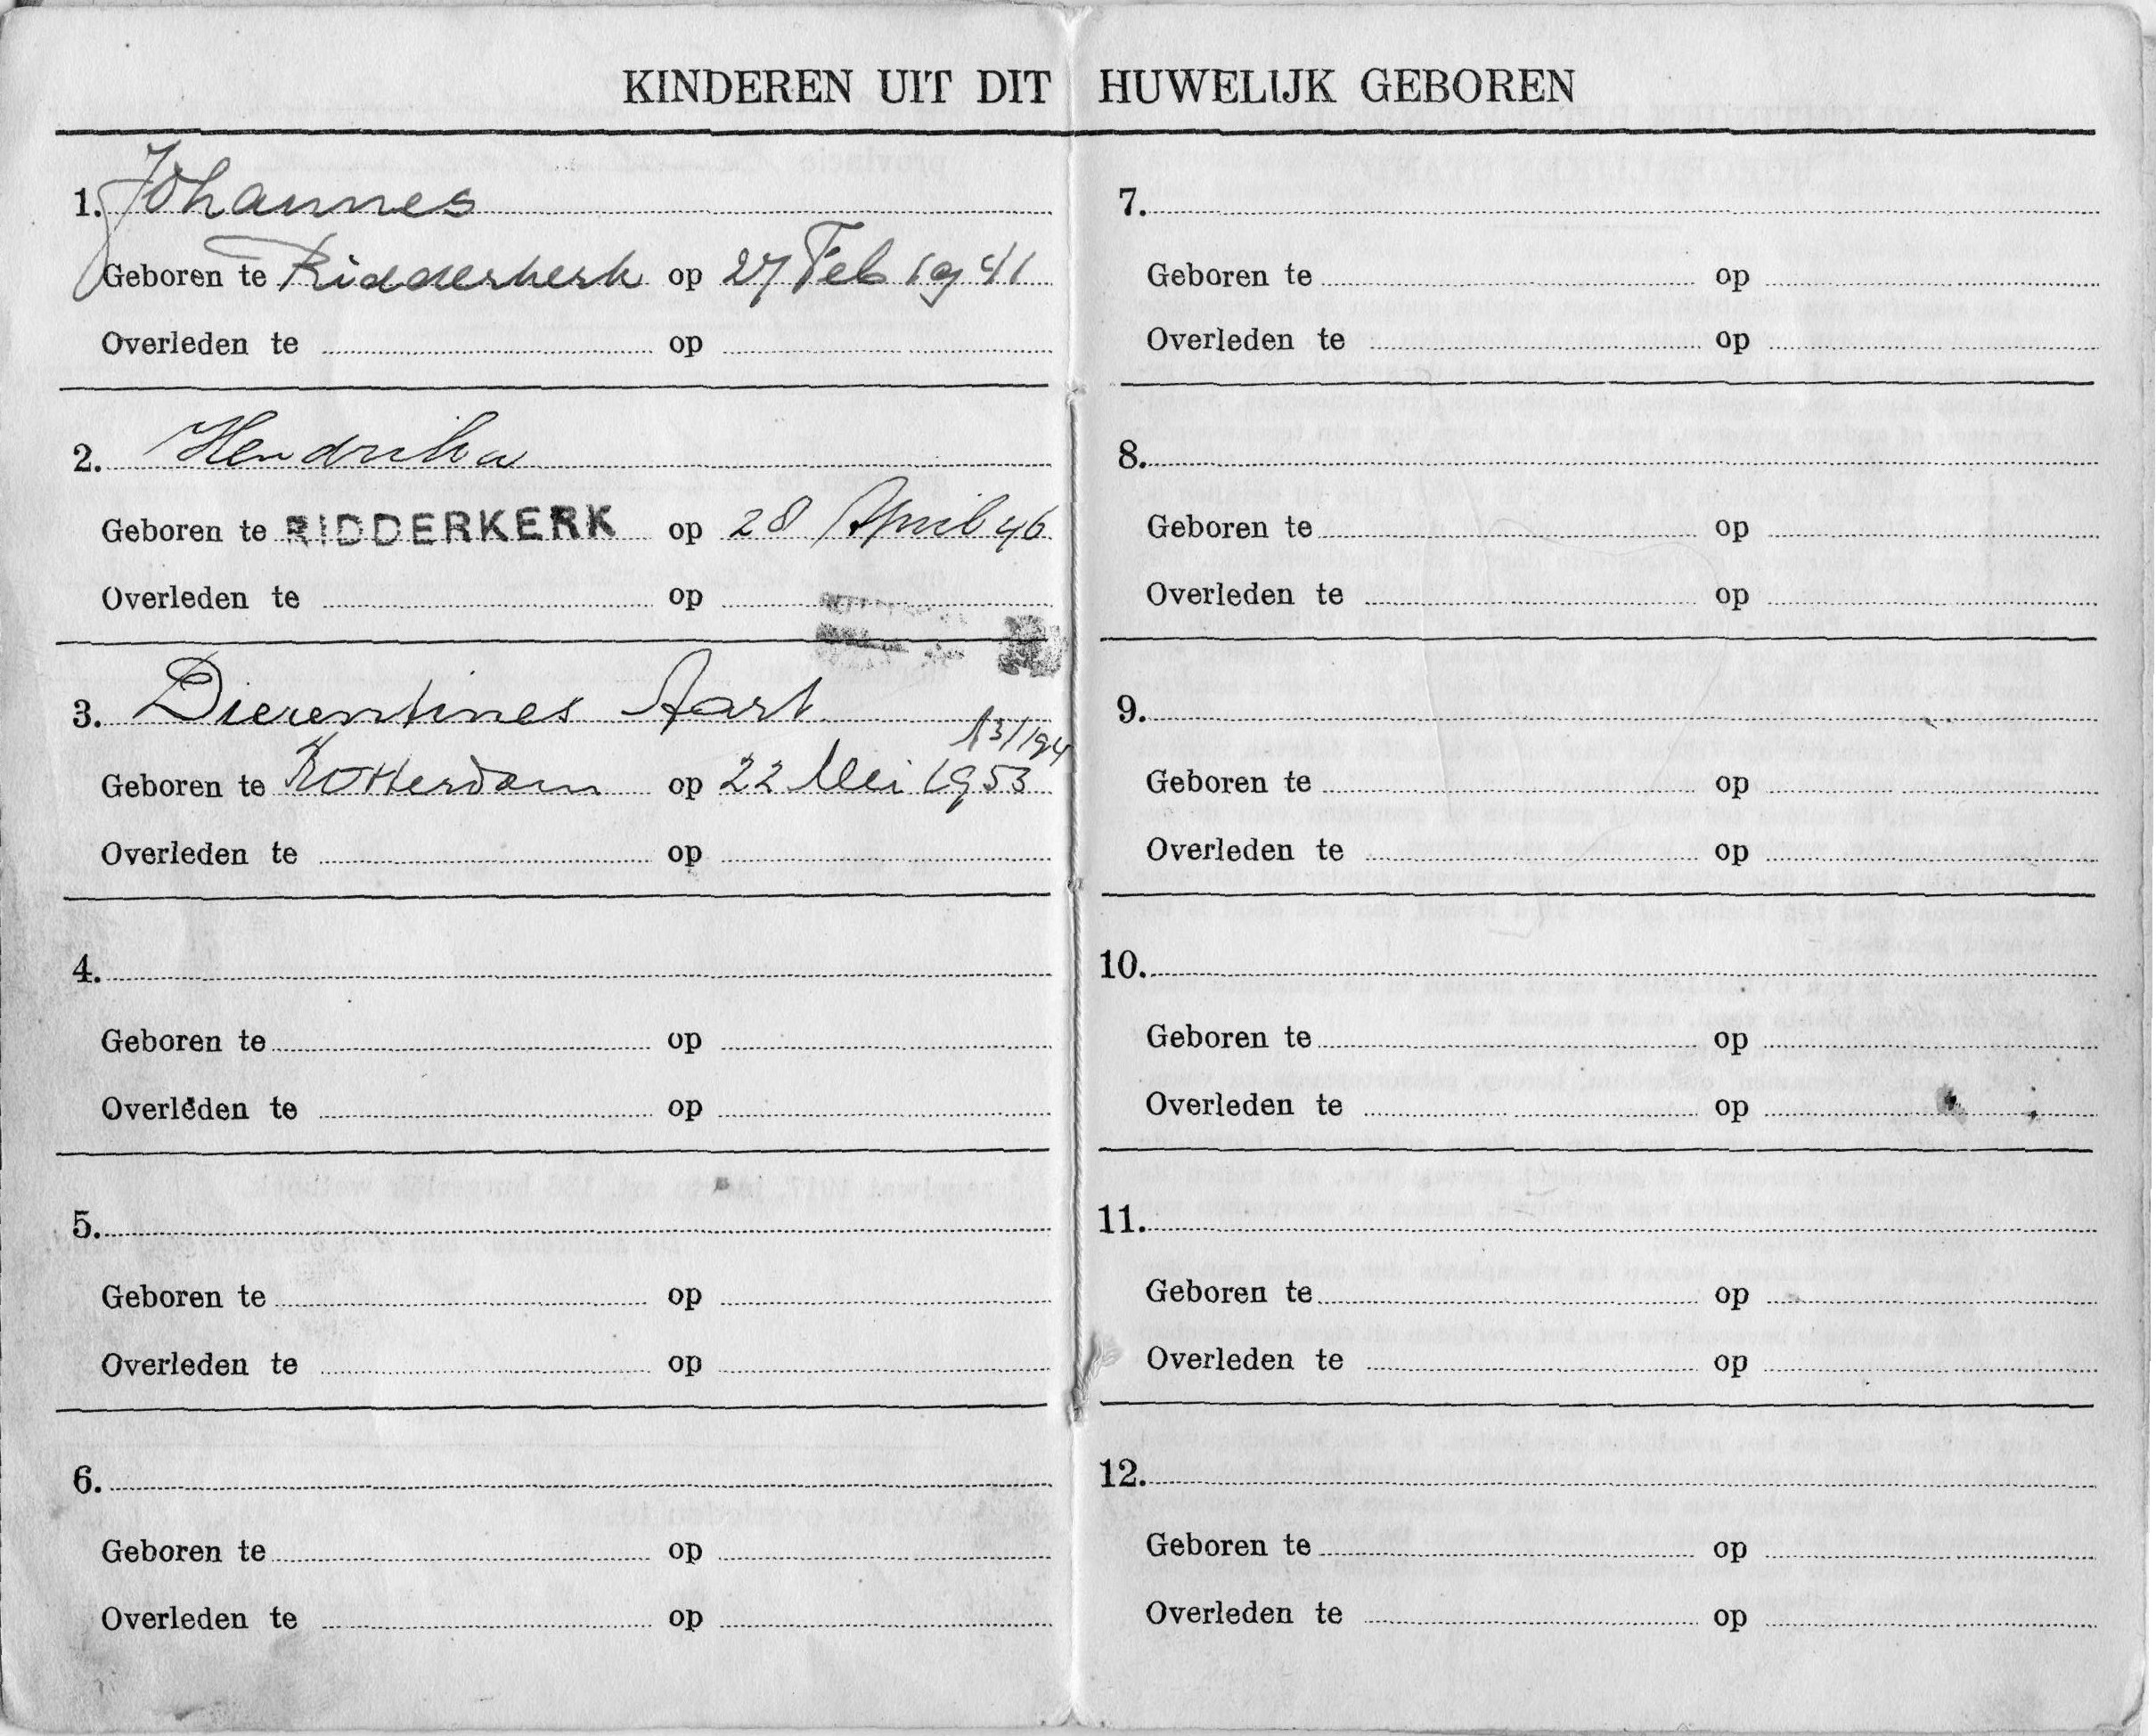 KINDEREN UIT DIT HUWELIJK GEBOREN
1. Johannes
Geboren te Ridderkerk op 27 Feb 1941
Overleden te op
2. Hendrika
Geboren te RIDDERKERK op 28 April 46
Overleden te op
3. Dierentines Aart
Geboren te Rotterdam op 22 Mei 1953
Overleden te op
4.
Geboren te op
Overleden te op
5.
Geboren te op
Overleden te op
6.
Geboren te op
Overleden te op
7.
Geboren te op
Overleden te op
8.
Geboren te op
Overleden te op
9.
Geboren te op
Overleden te op
10.
Geboren te op
Overleden te op
11.
Geboren te op
Overleden te op
12.
Geboren te op
Overleden te op